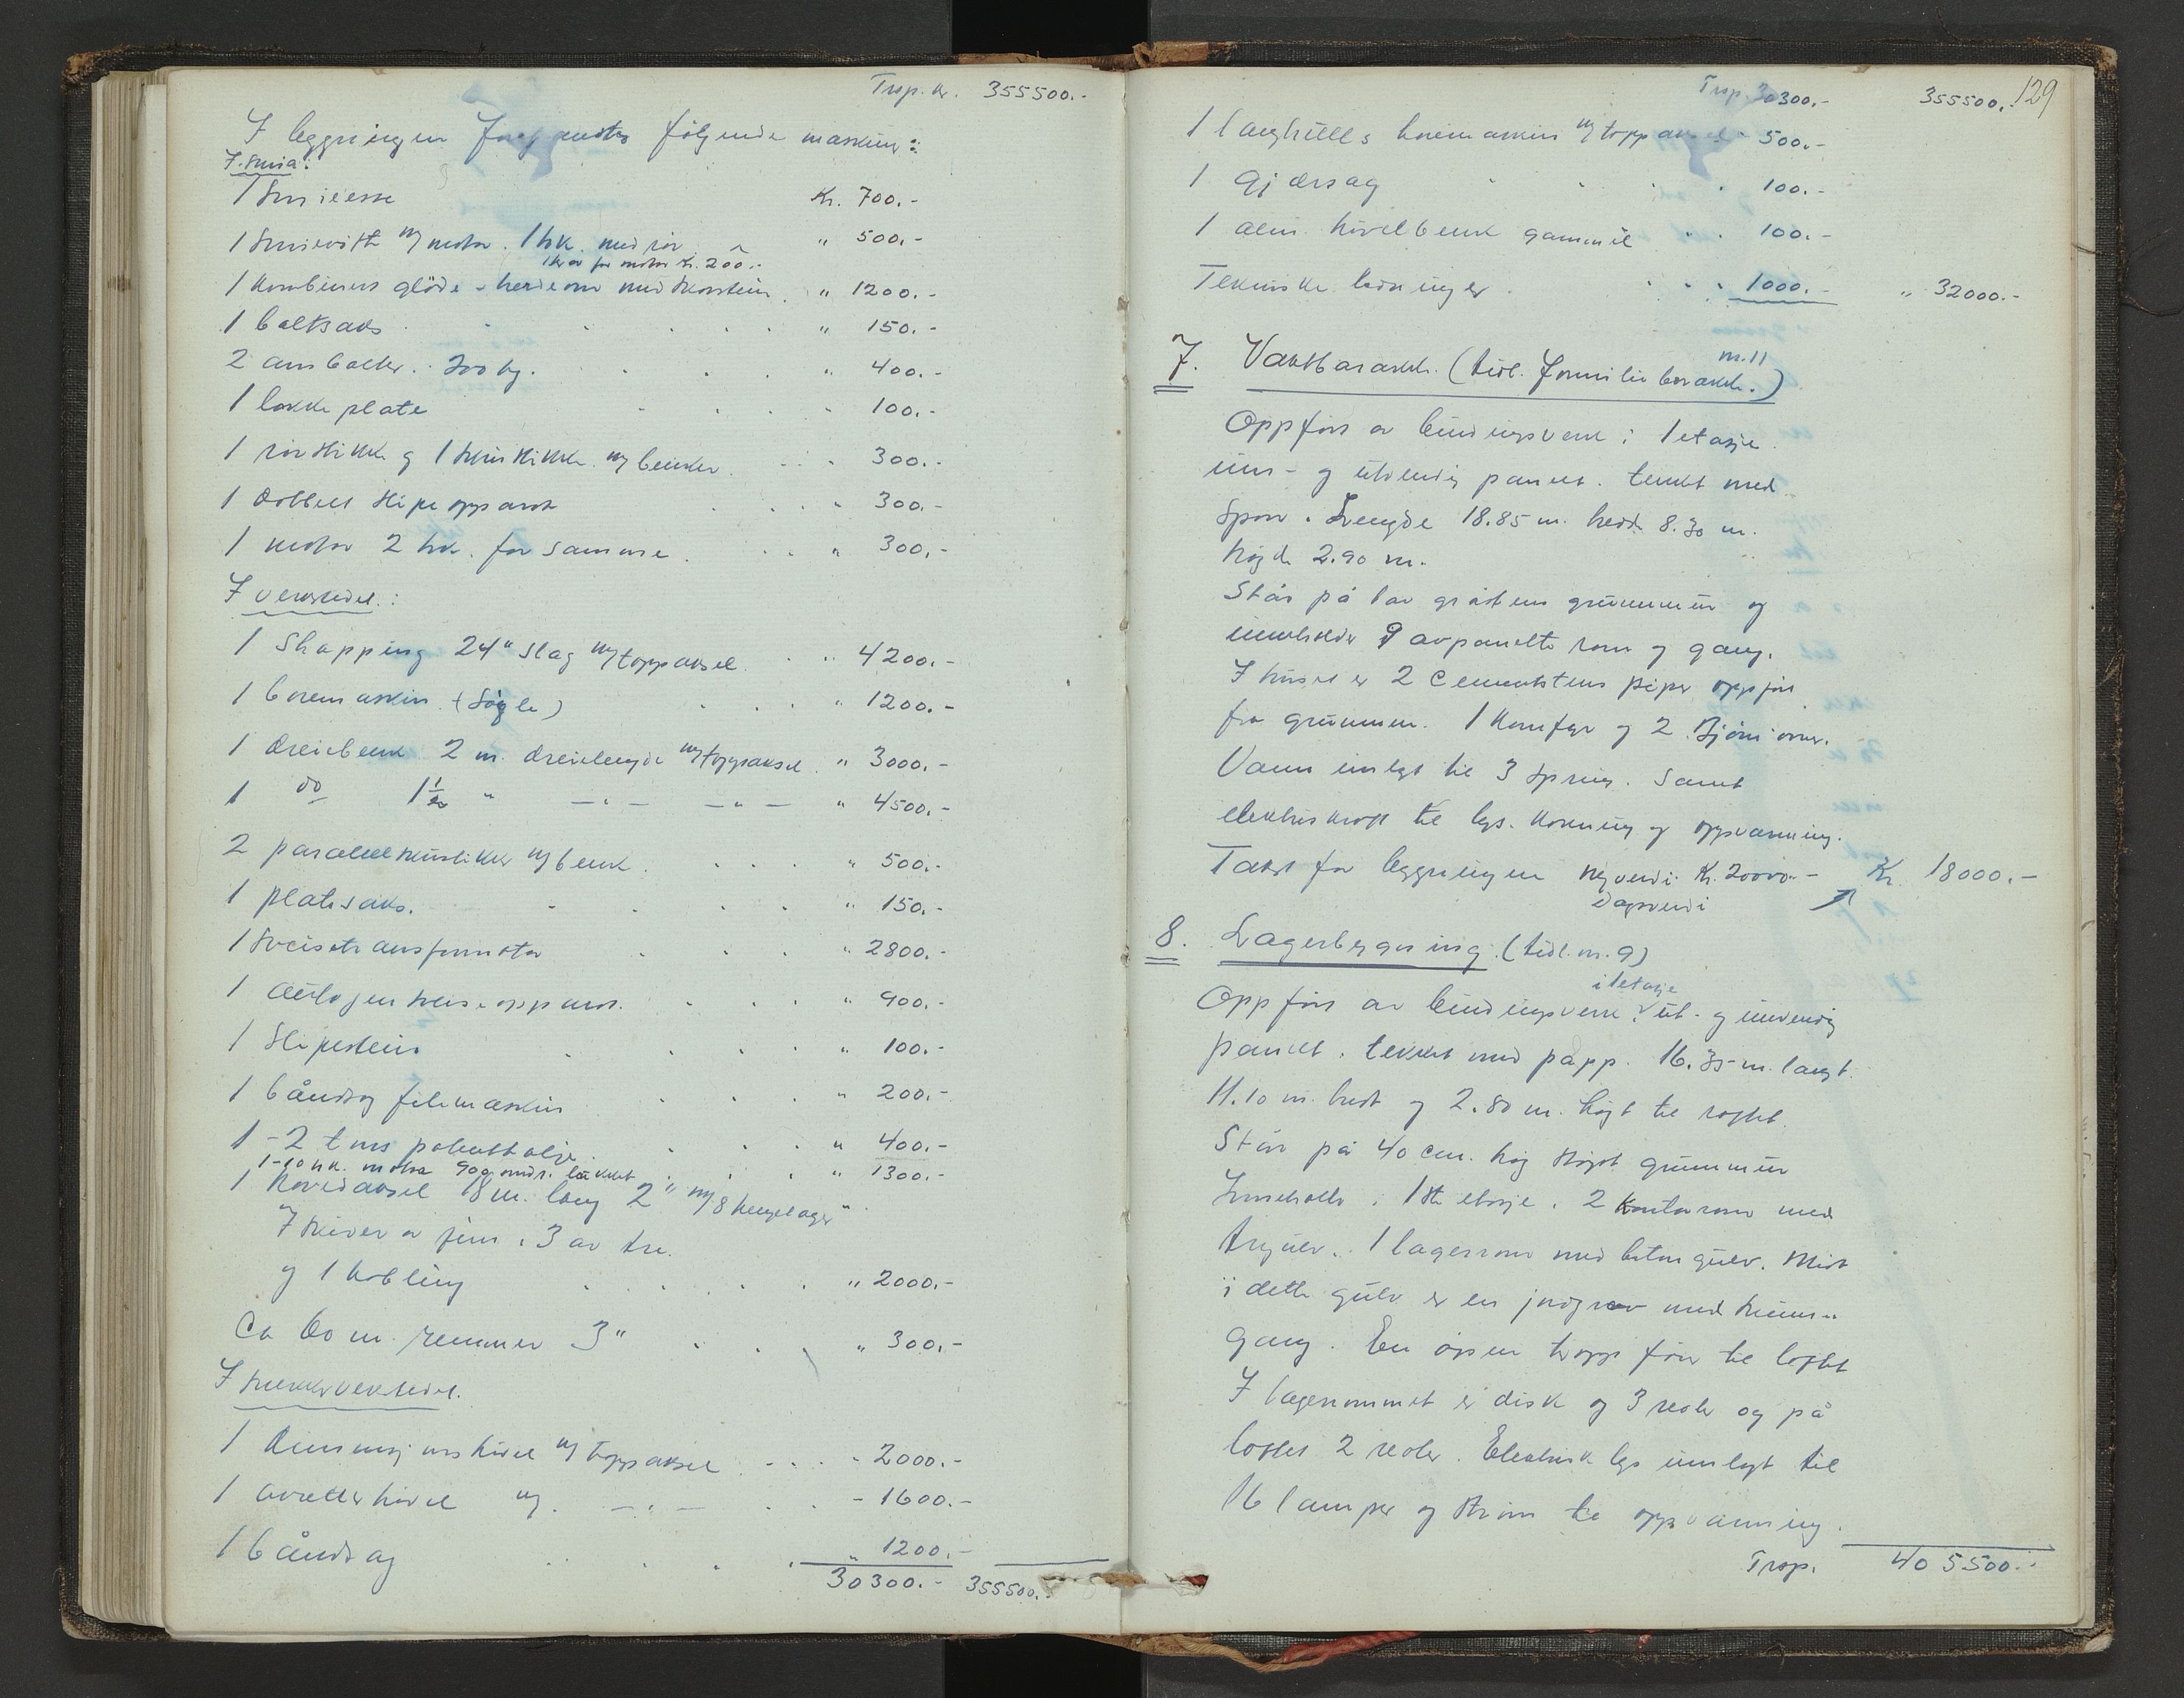 Trsp. kr. 355500.-
I bygningen følgende maskiner:
I smia:
1 Smieesse Kr. 700.-
1 Smievifte m/ motor. 1 hk. med rør " 500.-
for motor kr. 200.-
1 Kombinert gløde - herdeovn med skorstein " 1200.-
1 boltsaks " 150.-
2 ambolter. 200 kg. " 400.-
1 lokkeplate " 100.-
1 rørstikke og 1 skrustikke m/ benker. 300.-
1 dobbelt slipeapparat 300.-
1 motor 2 hk. for samme. " 300.-
I verksted:
1 Shapping 24" slag m/toppaksel. " 4200.-
1 boremaskin (Søyle) " 1200.-
1 dreiebenk 2 m. dreielengde m/toppaksel. " 3000.-
1 do 1½ " — " — — " — " 4500.-
2 paralellskrustikker m/benk. " 500.-
1 platesaks. " 150.-
1 Sveisetransformator " 2800.-
1 Autogen sveiseapparat. " 900.-
1 Slipestein " 100.-
1 båndsag filemaskin " 200.-
1 - 2 tons patenttalje. " 400.-
1-10 hk. motor 900 omdr. lukket " 1300.-
1 hovedaksel 18 m. lang 2" m/8 hengelager
7 skiver av jern, 3 av tre.
og 1 kobling " 2000.-
Ca 60 m. remmer 3" " 300.-
I snekkerverksted.
1 dimensjonshøvel m/ toppaksel 2000.-
1 avretterhøvel m/. — " — - 1600.-
1 båndsag " 1200.-
30300.- 355500.-
129
Trsp. 30300.- 355500.-
1 langhulls boremaskin m/toppaksel 500.-
1 Gjærsag 100.-
1 alm. høvelbenk gammel 100.-
Tekniske ledninger 1000.- " 32000.-
7. Vaktbarakk. (tidl. familiebarakk. nr. 11)
Oppført av bindingsverk i 1 etasje.
inn- og utvendig panelt. tekket med
Spon. Lengde 18.85 m. bredde 8.30 m.
høyde 2.90 m.
Står på lav gråstens grunnmur og
inneholder 9 avpanelte rom og gang.
I huset er 2 cementstens piper oppført
fra grunnen. 1 Komfyr og 2 Bjørn ovner.
Vann innlagt til 3 spring. samt
elektrisk kraft til lys. kokning og oppvarming.
Takst for bygningen nyverdi Kr. 20000.- Kr. 18000.-
dagsverdi
8. Lagerbygning. (tidl. nr. 9)
i 1 etasje
Oppført av bindingsverk. ut- og innvendig
panelt. tekket med papp. 16.35 m. langt.
11.10 m. bredt og 2.80 m. høyt til loftet.
Står på 40 cm. høy støpt grunnmur
Inneholder i 1ste etasje. 2 kontorrom med
tregulv. 1 lagerrom med betongulv. Midt
i dette gulv er en jordgrav med
gang. En åpen trapp fører til loftet
I lagerrommet er disk og 3 reoler og på
loftet 2 reoler. Elektrisk lys innlagt til
16 lamper og strøm til oppvarming.
Trsp. 405500.-